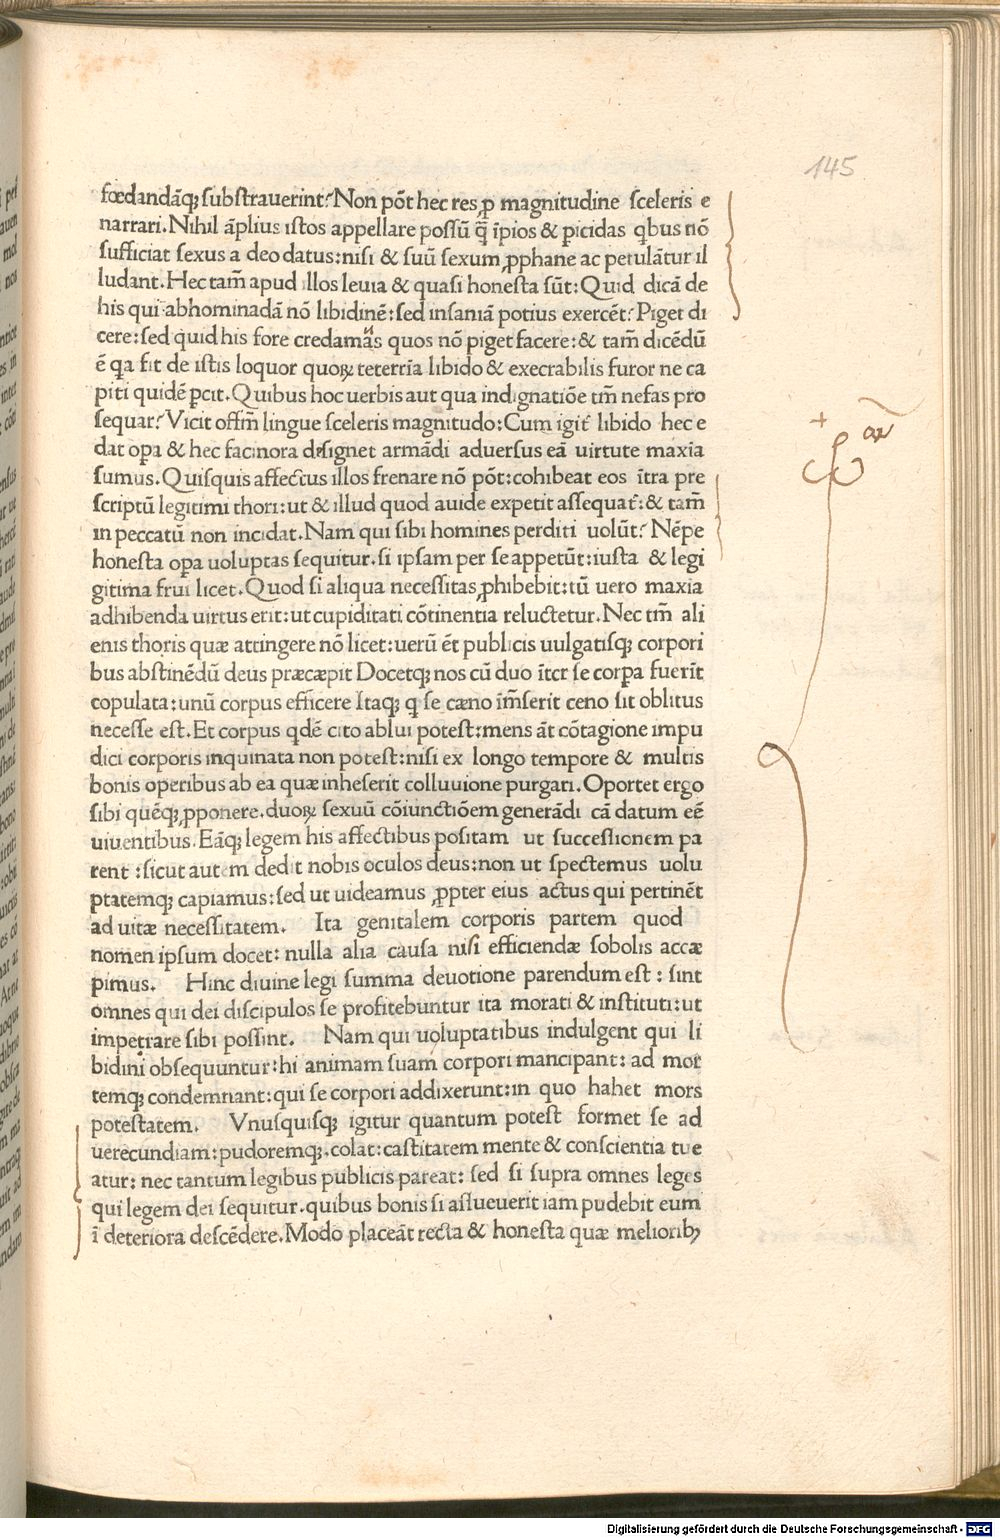 145
fœdandāqȝ substrauerint? Non pōt hec res ꝓ magnitudine sceleris e
narrari. Nihil āplius istos appellare possū q̄ īpios & ꝑicidas qbus nō
sufficiat sexus a deo datus: nisi & suū sexum ꝓphane ac petulātur il
ludant. Hec tam̄ apud illos leuia & quasi honesta sūt: Quid dicā de
his qui abhominadā nō libidinē: sed insaniā potius exercēt? Piget di
cere: sed quid his fore credamās quos nō piget facere: & tam̄ dicēdū
ē qa fit de istis loquor quoꝝ teterrīa libido & execrabilis furor ne ca
piti quidē ꝑcit. Quibus hoc uerbis aut qua indignatiōe tm̄ nefas pro
sequar? Vicit offm̄ lingue sceleris magnitudo: Cum igit̄ libido hec e
dat oꝑa & hec facinora designet armādi aduersus eā uirtute maxīa
sumus. Quisquis affectus illos frenare nō pōt: cohibeat eos ītra pre
scriptū legitimi thori: ut & illud quod auide expetit assequat̄: & tam̄
in peccatū non incidat. Nam qui sibi homines perditi uolūt? Nēpe
honesta oꝑa uoluptas sequitur. si ipsam per se appetūt: iusta & legi
gitima frui licet. Quod si aliqua necessitas ꝓhibebit: tū uero maxīa
adhibenda uirtus erit: ut cupiditati cōtinentia reluctetur. Nec tm̄ ali
enis thoris quæ attingere nō licet: uerū ēt publicis uulgatisqȝ corpori
bus abstinēdū deus præcæpit Docetqȝ nos cū duo īter se corꝑa fuerīt
copulata: unū corpus efficere Itaqȝ q se cæno īm̄serit ceno sit oblitus
necesse est. Et corpus qdē cito ablui potest: mens āt cōtagione impu
dici corporis inquinata non potest: nisi ex longo tempore & multis
bonis operibus ab ea quæ inheserit colluuione purgari. Oportet ergo
sibi quēqȝ ꝓponere. duoꝝ sexuū cōiunctiōem generādi cā datum eē
uiuentibus. Eāqȝ legem his affectibus positam ut successionem pa
rent: sicut autem dedit nobis oculos deus: non ut spectemus uolu
ptatemqȝ capiamus: sed ut uideamus ꝓpter eius actus qui pertinēt
ad uitæ necessitatem. Ita genitalem corporis partem quod
nomen ipsum docet: nulla alia causa nisi efficiendæ sobolis accæ
pimus. Hinc diuine legi summa deuotione parendum est: sint
omnes qui dei discipulos se profitebuntur ita morati & instituti: ut
impetrare sibi possint. Nam qui uoluptatibus indulgent qui li
bidini obsequuntur: hi animam suam corpori mancipant: ad mor
temqȝ condemnant: qui se corpori addixerunt: in quo hahet mors
potestatem. Vnusquisqȝ igitur quantum potest formet se ad
uerecundiam: pudoremqȝ. colat: castitatem mente & conscientia tue
atur: nec tantum legibus publicis pareat: sed si supra omnes leges
qui legem dei sequitur. quibus bonis si assueuerit iam pudebit eum
ī deteriora descēdere. Modo placeāt recta & honesta quæ melioribȝ
Digitalisierung gefördert durch die Deutsche Forschungsgemeinschaft - DFG